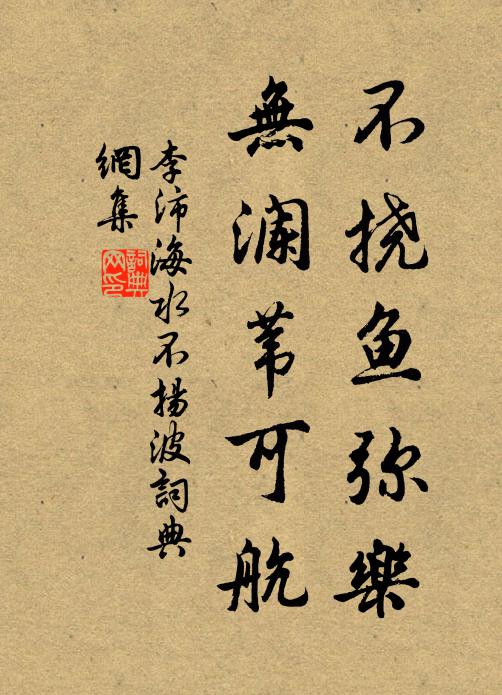 不挠鱼弥樂
無澜苇可航
李沛海水不揚波詞典
網集
詞典网印